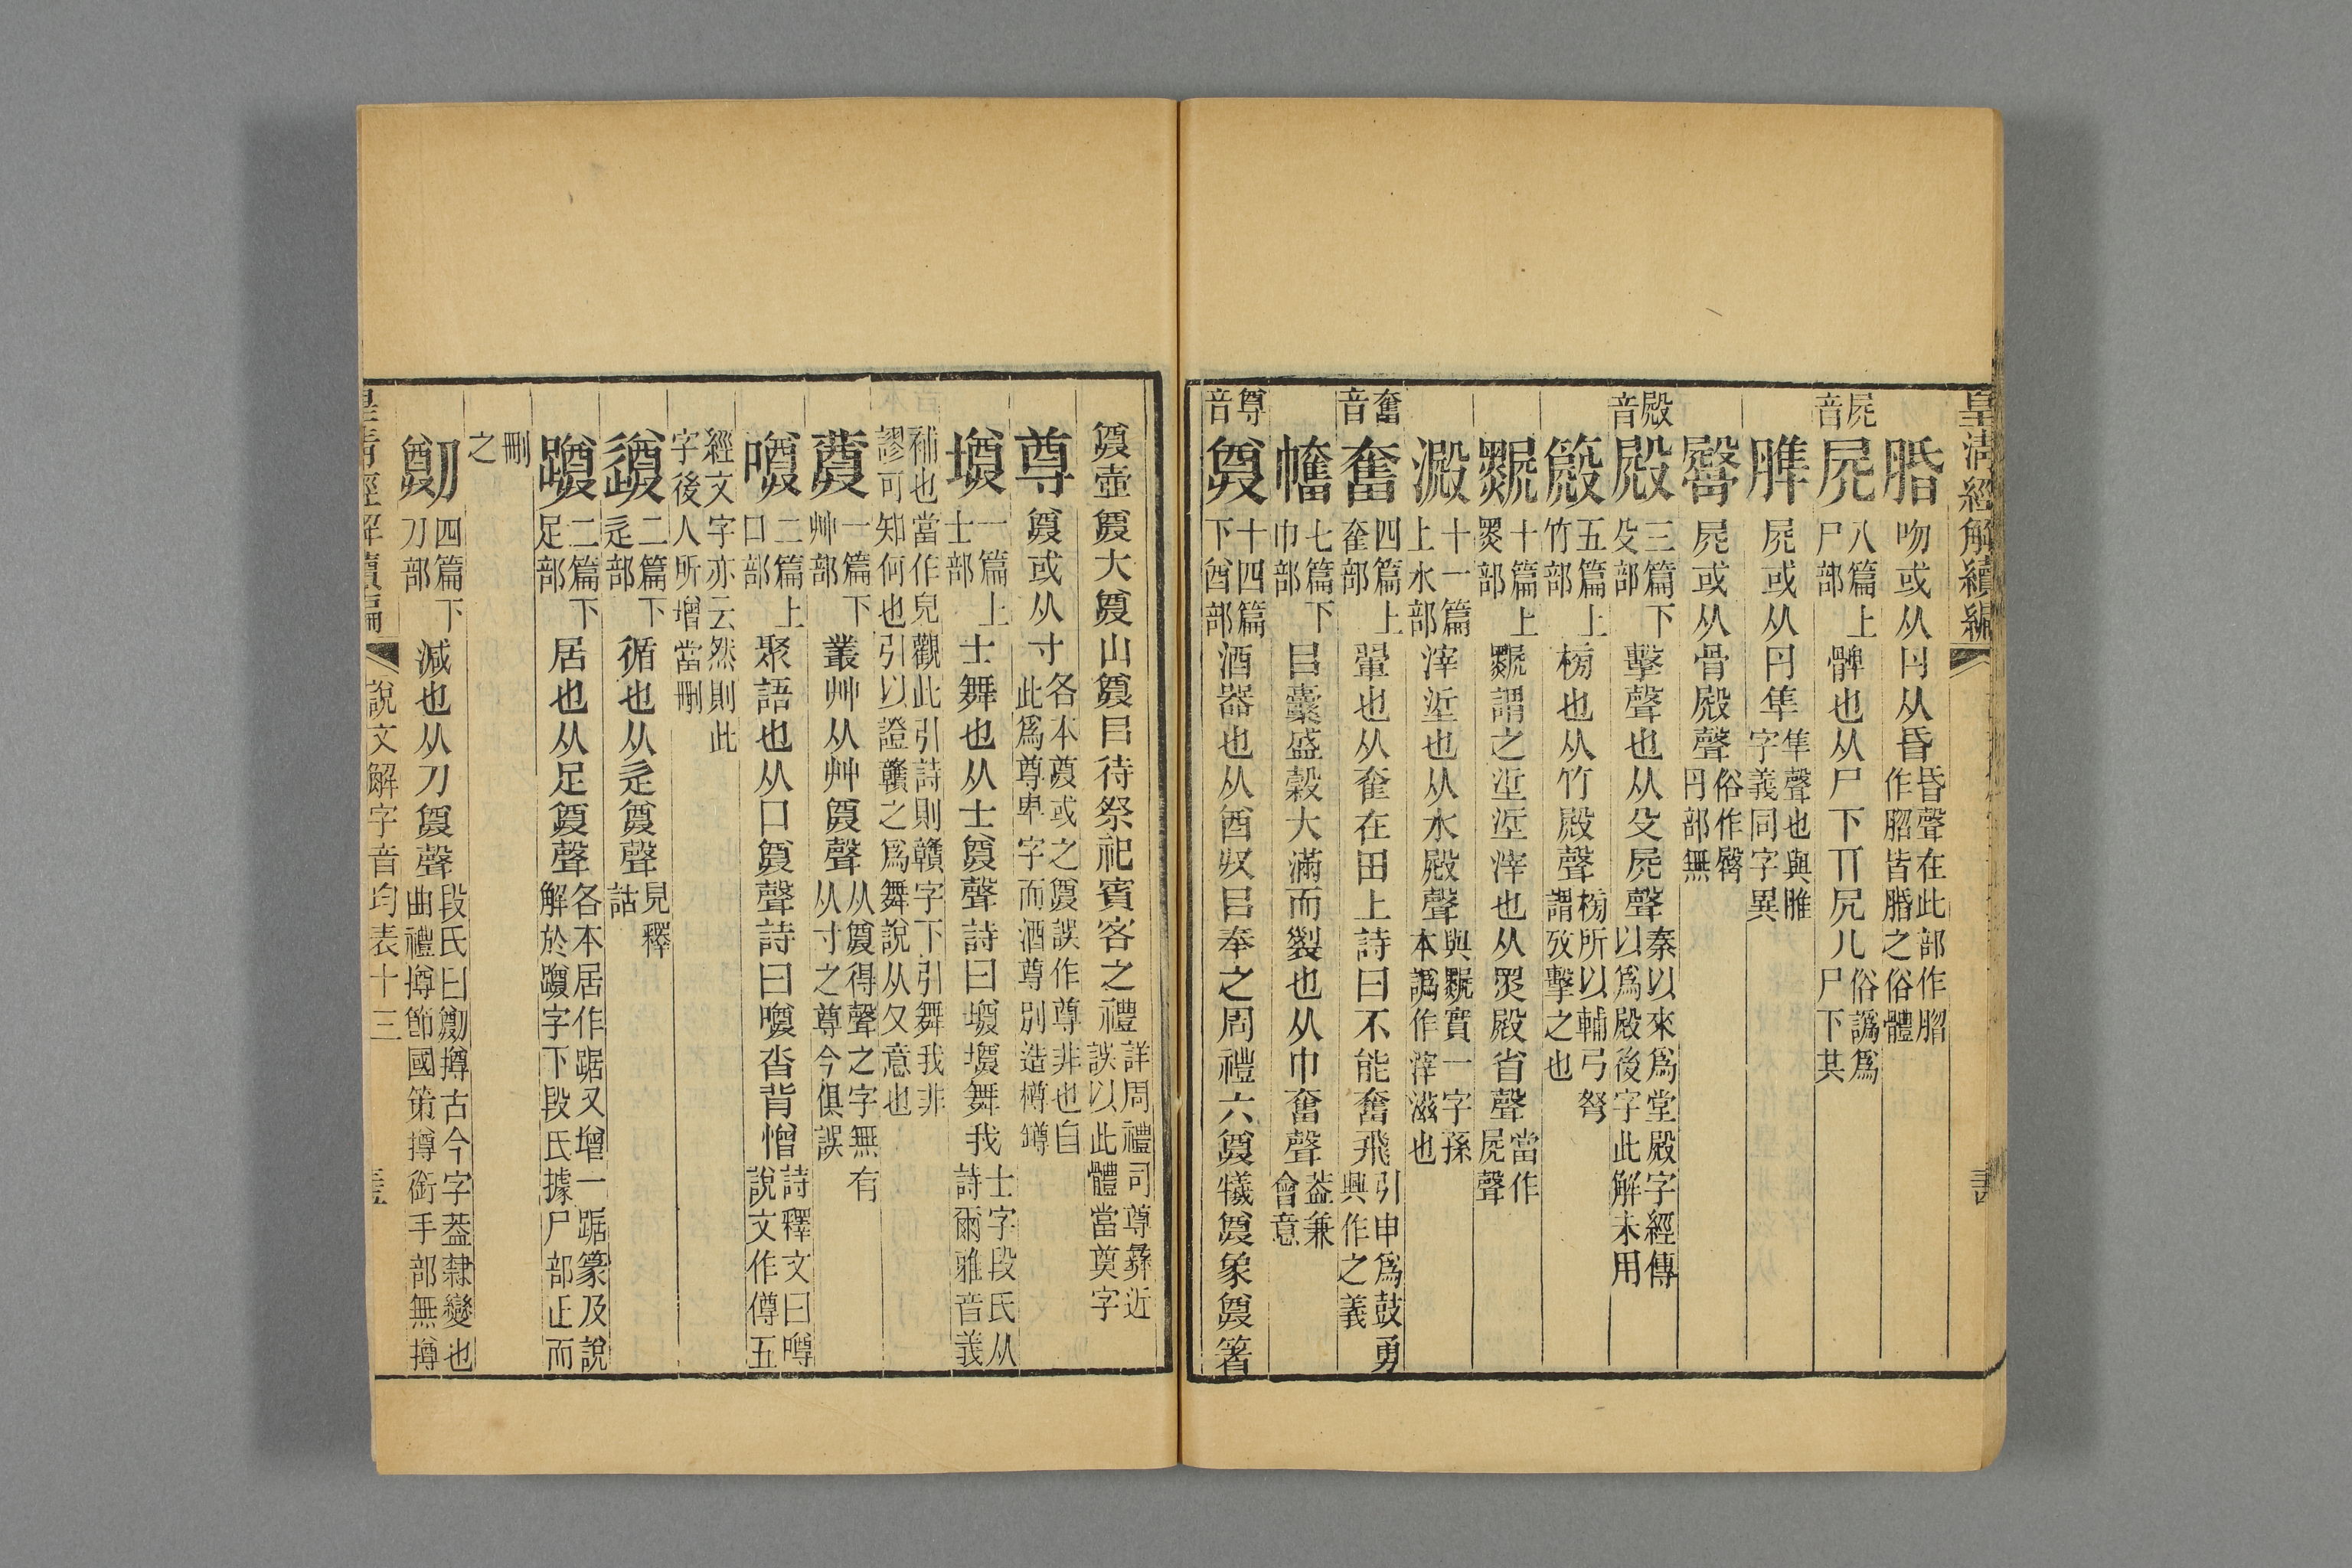 皇清經解續編
脗吻或从⺼从昏昏聲在此部作䐇作䐇皆脗之俗體
𡱂音𡱂八篇上尸部髀也从尸下丌凥几俗譌為尸下其
脽𡱂或从⺼隼隼聲也與脽字義同字異
臋𡱂或从骨殿聲俗作臀⺼部無
殿音殿三篇下殳部擊聲也从殳𡱂聲秦以來為堂殿字經傳以為殿後字此解未用
𥴫五篇上竹部榜也从竹殿聲榜所以輔弓弩謂攷擊之也
十篇上炎部謂之垽垽滓也从炎殿省聲當作𡱂聲
澱十一篇上水部滓垽也从水殿聲與實一字孫本譌作滓滋也
奮音奮四篇上奞部翬也从奞在田上詩曰不能奮飛引申為鼓勇興作之義
㠕七篇下巾部㠯囊盛穀大滿而裂也从巾奮聲葢兼會意
尊音𢍜十四篇下酋部酒器也从酋廾㠯奉之周禮六𢍜犧𢍜象𢍜箸
𢍜壺𢍜大𢍜山𢍜㠯待祭祀賓客之禮詳周禮司尊彝近誤以此體當奠字
尊𢍜或从寸各本𢍜或之𢍜誤作尊非也自此為尊卑字而酒尊別造樽罇
壿一篇上士部士舞也从士𢍜聲詩曰壿壿舞我士字段氏从詩爾雅音義
補也當作皃觀此引詩則贛字下引舞我非謬可知何也引以證贛之為舞說从夂意也
蓴一篇下艸部叢艸从艸𢍜聲从𢍜得聲之字無有从寸之尊今俱誤
噂二篇上口部聚語也从口𢍜聲詩曰噂沓背憎詩釋文曰噂說文作僔五
經文字亦云然則此字後人所增當刪
遵二篇下辵部循也从辵𢍜聲見釋詁
蹲二篇下足部居也从足𢍜聲各本居作踞又增一踞篆及說解於蹲字下段氏據尸部正而
刪之
劕四篇下刀部減也从刀𢍜聲段氏曰劕撙古今字葢隸變也曲禮撙節國策撙銜手部無撙
皇清經解續編 說文解字音均表十三